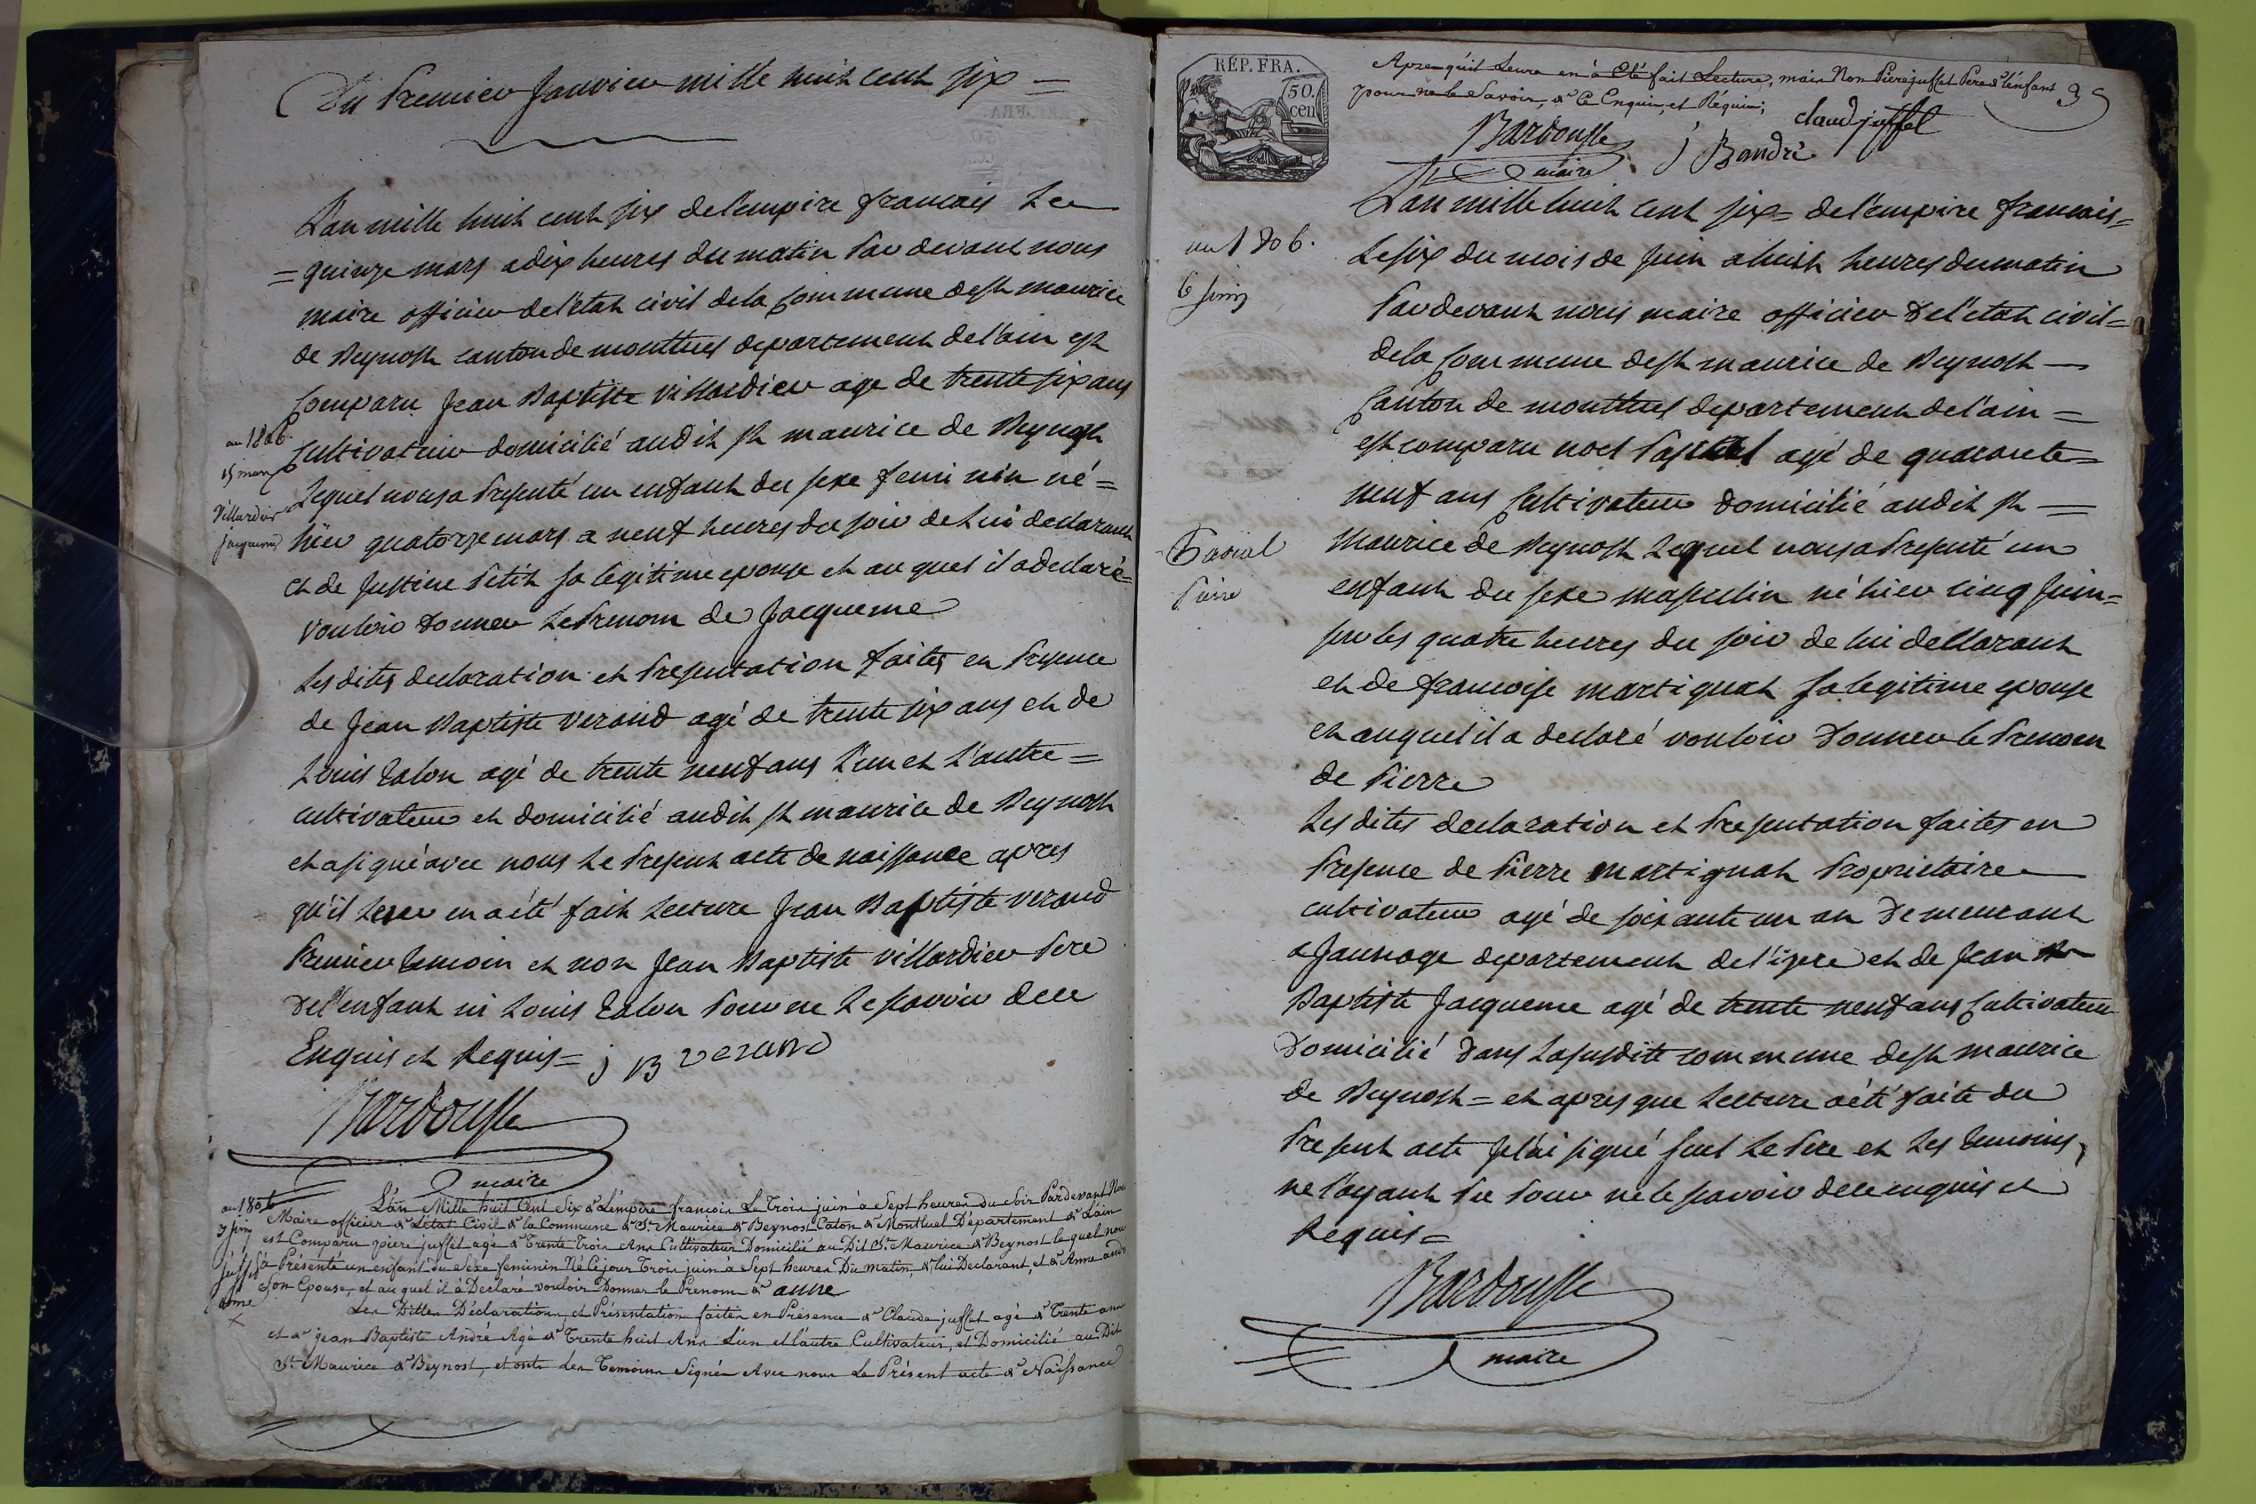 Du Premier Janvier mille huit cent six =
L'an mille huit cent six de l'empire francais Le
= quinze mars a dix heures du matin Par devant nous
maire officier de l'etat civil de la Commune de st maurice
de Beynost canton de montluel departement de l'ain est
Comparu Jean Baptiste Villardier age de trente six ans
an 1806.
15 mars
Villardier
Jacqueme
Cultivateur domicilié audit st maurice de Beynost
Lequel nous a Presenté un enfant du sexe feminin né =
hier quatorze mars a neuf heures du soir de Lui declarant
et de Justine Petit sa legitime epouse et au quel il a declaré =
Vouloir Donner Le Prenom de Jacqueme
Les dites declaration et Presentation faites en Presence
de Jean Baptiste Verand agé de trente six ans et de
Louis Talon agé de trente neuf ans L'un et L'autre =
cultivateur et domicilié audit st maurice de Beynost
et a signé avec nous Le Present acte de naissance apres
qu'il Leur en a été fait Lecture Jean Baptiste Verand
Premier temoin et non Jean Baptiste Villardier Pere
De l'enfant ni Louis Talon Pour ne Le savoir de ce
Enquis et Requis = j B verand
Bardousse
maire
an 1806
3 juin
juffet
anne
L'an Mille huit Cent Six de L'empire françois Le Trois juin à Sept heures du Soir Pardevant Nous
Maire officier de L'état Civil de la Commune de St Maurice de Beynost Caton de Montluel Département de L'ain
est Comparu piere juffet agé de Trente Trois Ans Cultivateur Domicilié au Dit St Maurice de Beynost le quel nous
a Présenté un enfant du Sexe feminin Né Cejour Trois juin à Sept heures Du Matin, de lui Declarant, et de Anne andré
Son Epouse, et au quel il à Declaré vouloir Donner le Prenom de anne
Les Dittes Déclaration, et Présentation faites en Présence de Claude juffet agé de Trente ans
et de jean Baptiste André Agé de Trente huit Ans L'un et l'autre Cultivateur, et Domicilié au Dit
St Maurice de Beynost, et ont Les Temoins Signés Avec nous Le Présent acte de Naissance
RÉP. FRA.
50.
cen
Apres qu'il Leurs en à Eté fait Lecture, mais Non Piere juffet Pere de l'enfant
pour ne le Savoir, de Ce Enquis, et Réquis;
claud juffet
Bardousse
maire
j B andré
L'an mille huit cent six = de l'empire francais =
an 1806.
6 Juin
Le six du mois de Juin a huit heures du matin
Par devant nous maire officier De l'etat civil =
de la Commune de st maurice de Beynost
Canton de montluel departement de l'ain =
est comparu noel Pascal agé de quarante =
neuf ans Cultivateur Domicilié audit st
Pascal
Pierre
Maurice de Beynost Lequel nous a Presenté un
enfant du sexe masculin né hier cinq Juin =
sur les quatre heures du soir de lui declarant
et de francoise martignat sa legitime epouse
et auquel il a declaré vouloir Donner le Prenom
de Pierre
Les dites declaration et Presentation faites en
Presence de Pierre martignat Proprietaire
cultivateur agé de soixante un an Demeurant
a Jannage departement de l'izere et de Jean
Baptiste Jacqueme agé de trente neuf ans Cultivateur
Domicilié Dans La susdite commune de st maurice
de Beynost = et apres que Lecture a été faite du
Present acte Je l'ai signé seul Le Pere et Les temoins,
ne l'ayant Pu Pour ne le savoir de ce enquis et
Requis =
Bardousse
maire